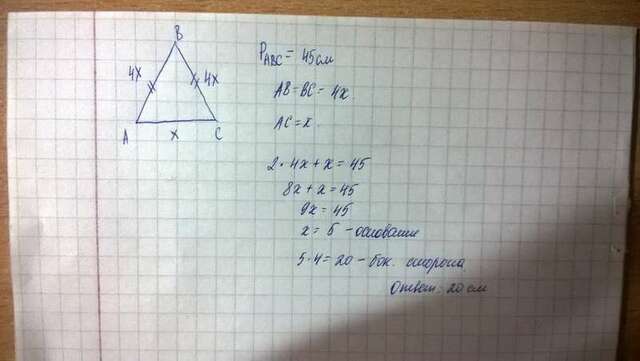 B
4x 4x
A x C
P_ABC = 45 см
AB = BC = 4x.
AC = x.
2 · 4x + x = 45
8x + x = 45
9x = 45
x = 5 - основание
5 · 4 = 20 - бок. сторона
Ответ: 20 см